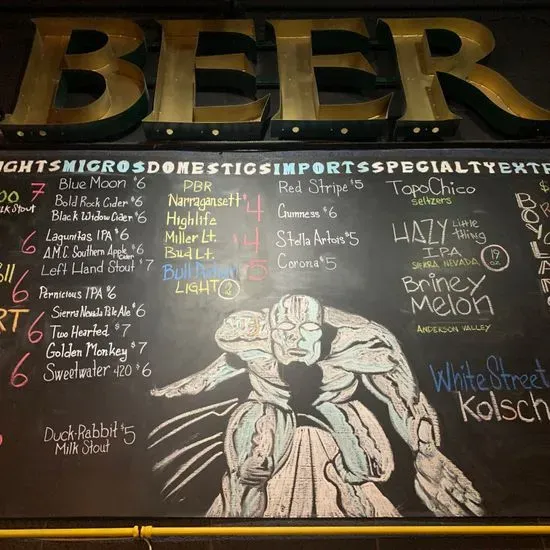 BEER
GHTS MICROS DOMESTICS IMPORTS SPECIALTY EXTR
OO 7
ilk Stout
6
6
RT 6
6
Blue Moon $6
Bold Rock Cider $6
Black Widow Cider $6
Lagunitas IPA $6
A.M.C. Southern Apple Cider $6
Left Hand Stout $7
Pernicious IPA $6
Sierra Nevada Pale Ale $6
Two Hearted $7
Golden Monkey $7
Sweetwater 420 $6
Duck-Rabbit $5
Milk Stout
PBR
Narragansett $4
Highlife
Miller Lt. $4
Bud Lt.
LIGHT
Red Stripe $5
Guinness $6
Stella Artois $5
Corona $5
Topo Chico
seltzers
HAZY Little thing
IPA
SIERRA NEVADA 19 oz
Briney
Melon
ANDERSON VALLEY
White Street
Kolsch
$
BOYLAN